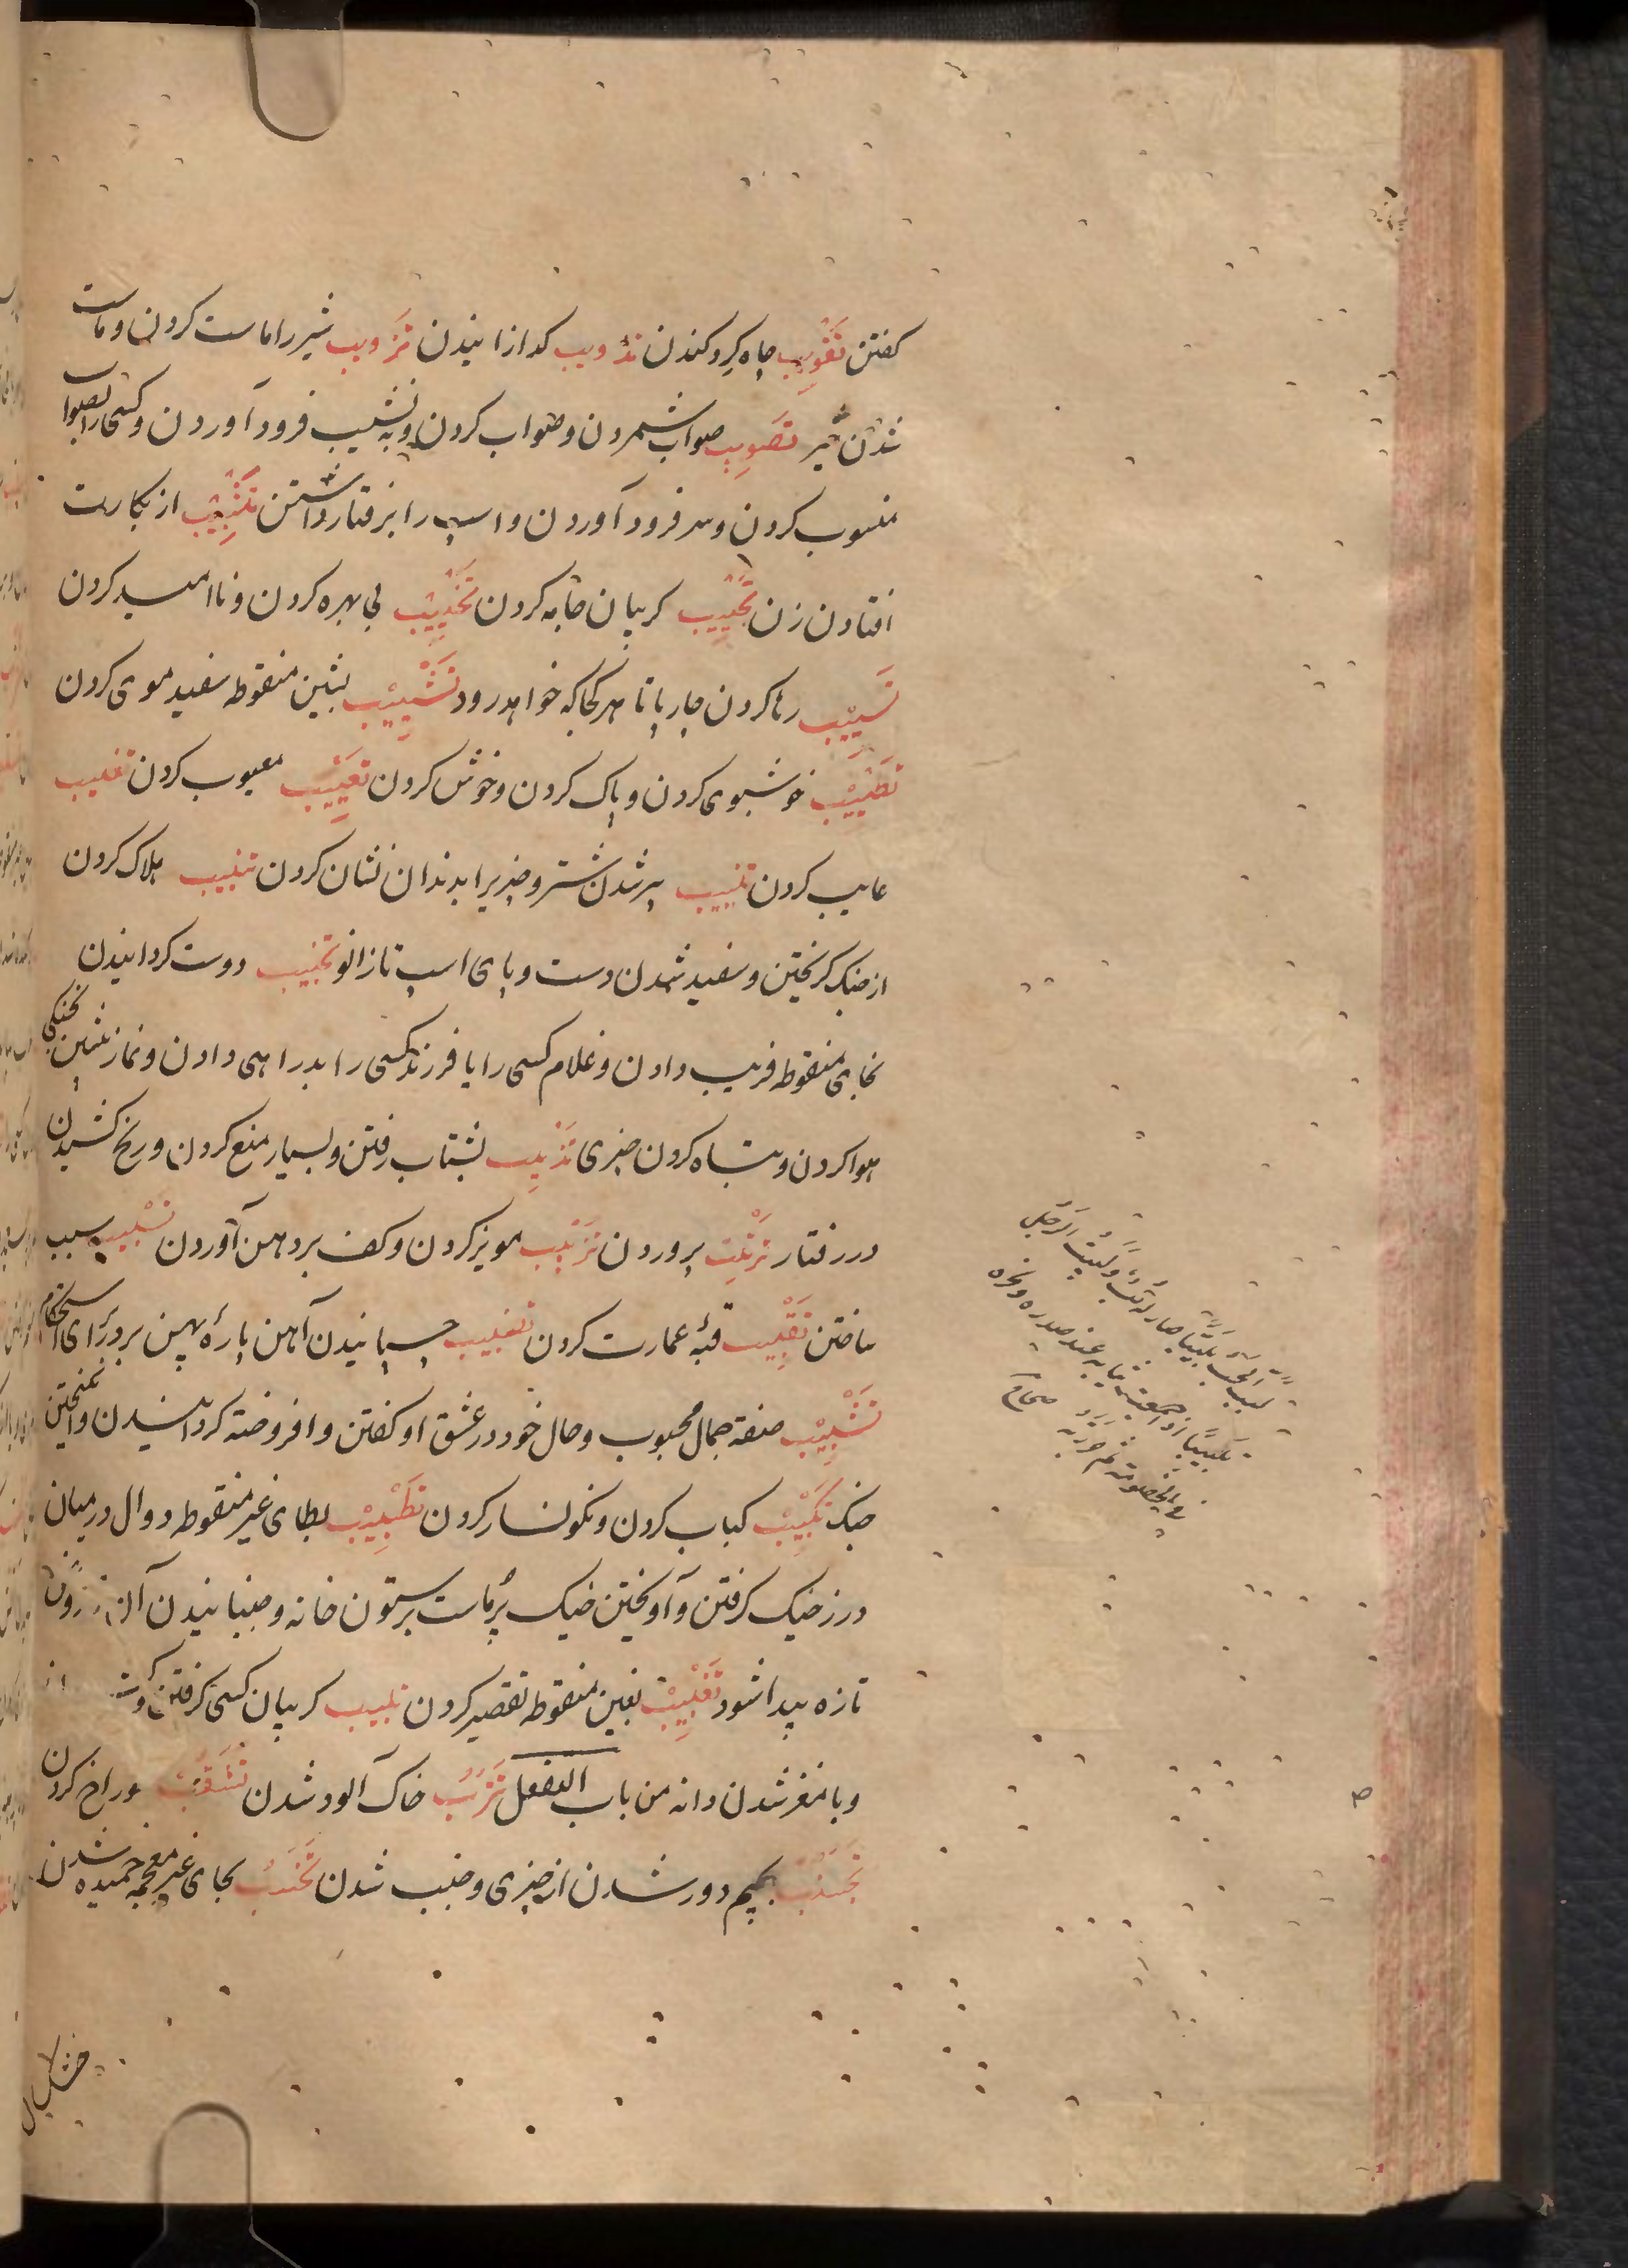 کفتن تَقْوِیب چاه کرد کندن تذویب کدازانیدن تَرْویب شیر را ماست کردن و ماست
شدن شیر تصویب صواب شمردن و صواب کردن و به نشیب فرود آوردن و کسی را بصواب
منسوب کردن و سر فرود آوردن و اسپ را برفتار داشتن تَثْیِیْب از بکارت
افتادن زن تَجْیِیب کریبان جامه کردن تَخْیِیْب بی بهره کردن و ناامید کردن
تَسْیِیب رها کردن چارپا تا هر کجا که خواهد رود تَشْیِیْب بشین منقوطه سفید موی کردن
تَطْیِیْب خوشبوی کردن و پاک کردن و خوش کردن تَعْیِیْب معیوب کردن تغییب
غایب کردن تنییب پیر شدن شتر و چیزیرا بدندان نشان کردن تتبیب هلاک کردن
از جنک کریختن و سفید شدن دست و پای اسپ تا زانو تحبیب دوست کردانیدن
بخای منقوطه فریب دادن و غلام کسی را یا فرزند کسی را بدراهی دادن و نماز پشین بخنکی
هوا کردن و تباه کردن چیزی تَذْبِیب بشتاب رفتن و بسیار منع کردن و رنج کشیدن
در رفتار تَرْبِیْب پروردن تَزْبِیْب مویز کردن و کف بر دهن آوردن تَسْبِیب سبب
ساختن تَقْبِیْب قبهٔ عمارت کردن تضبیب چسپانیدن آهن پارهٔ پهن بر در برای استحکام
تَشْبِیْب صفة جمال محبوب و حال خود در عشق او کفتن و افروخته کردانیدن و انکیختن
جنک تَکْبِیْب کباب کردن و نکونسار کردن تَطْبِیْب بطای غیر منقوطه دوال در میان
درز خیک کرفتن و آویختن خیک پُر ماست بر ستون خانه و جنبانیدن آن
تازه پیدا شود تَغْبِیْب بغین منقوطه تقصیر کردن تلبیب کریبان کسی کرفتن
و با مغز شدن دانه من باب التفعل تَتَرُّب خاک آلود شدن تَثَقُّب سوراخ کردن
تَجَنُّب بجیم دور شدن از چیزی و جنب شدن تَحَنُّب بحای غیر معجمه خمیده شدن
لبب الحب تلبیبا صار له لبّ ولببت الرجل
تلبیباً اذا جمعت ثیابه عند صدره ونحره
فی الخصومة ثم جررته صحاح